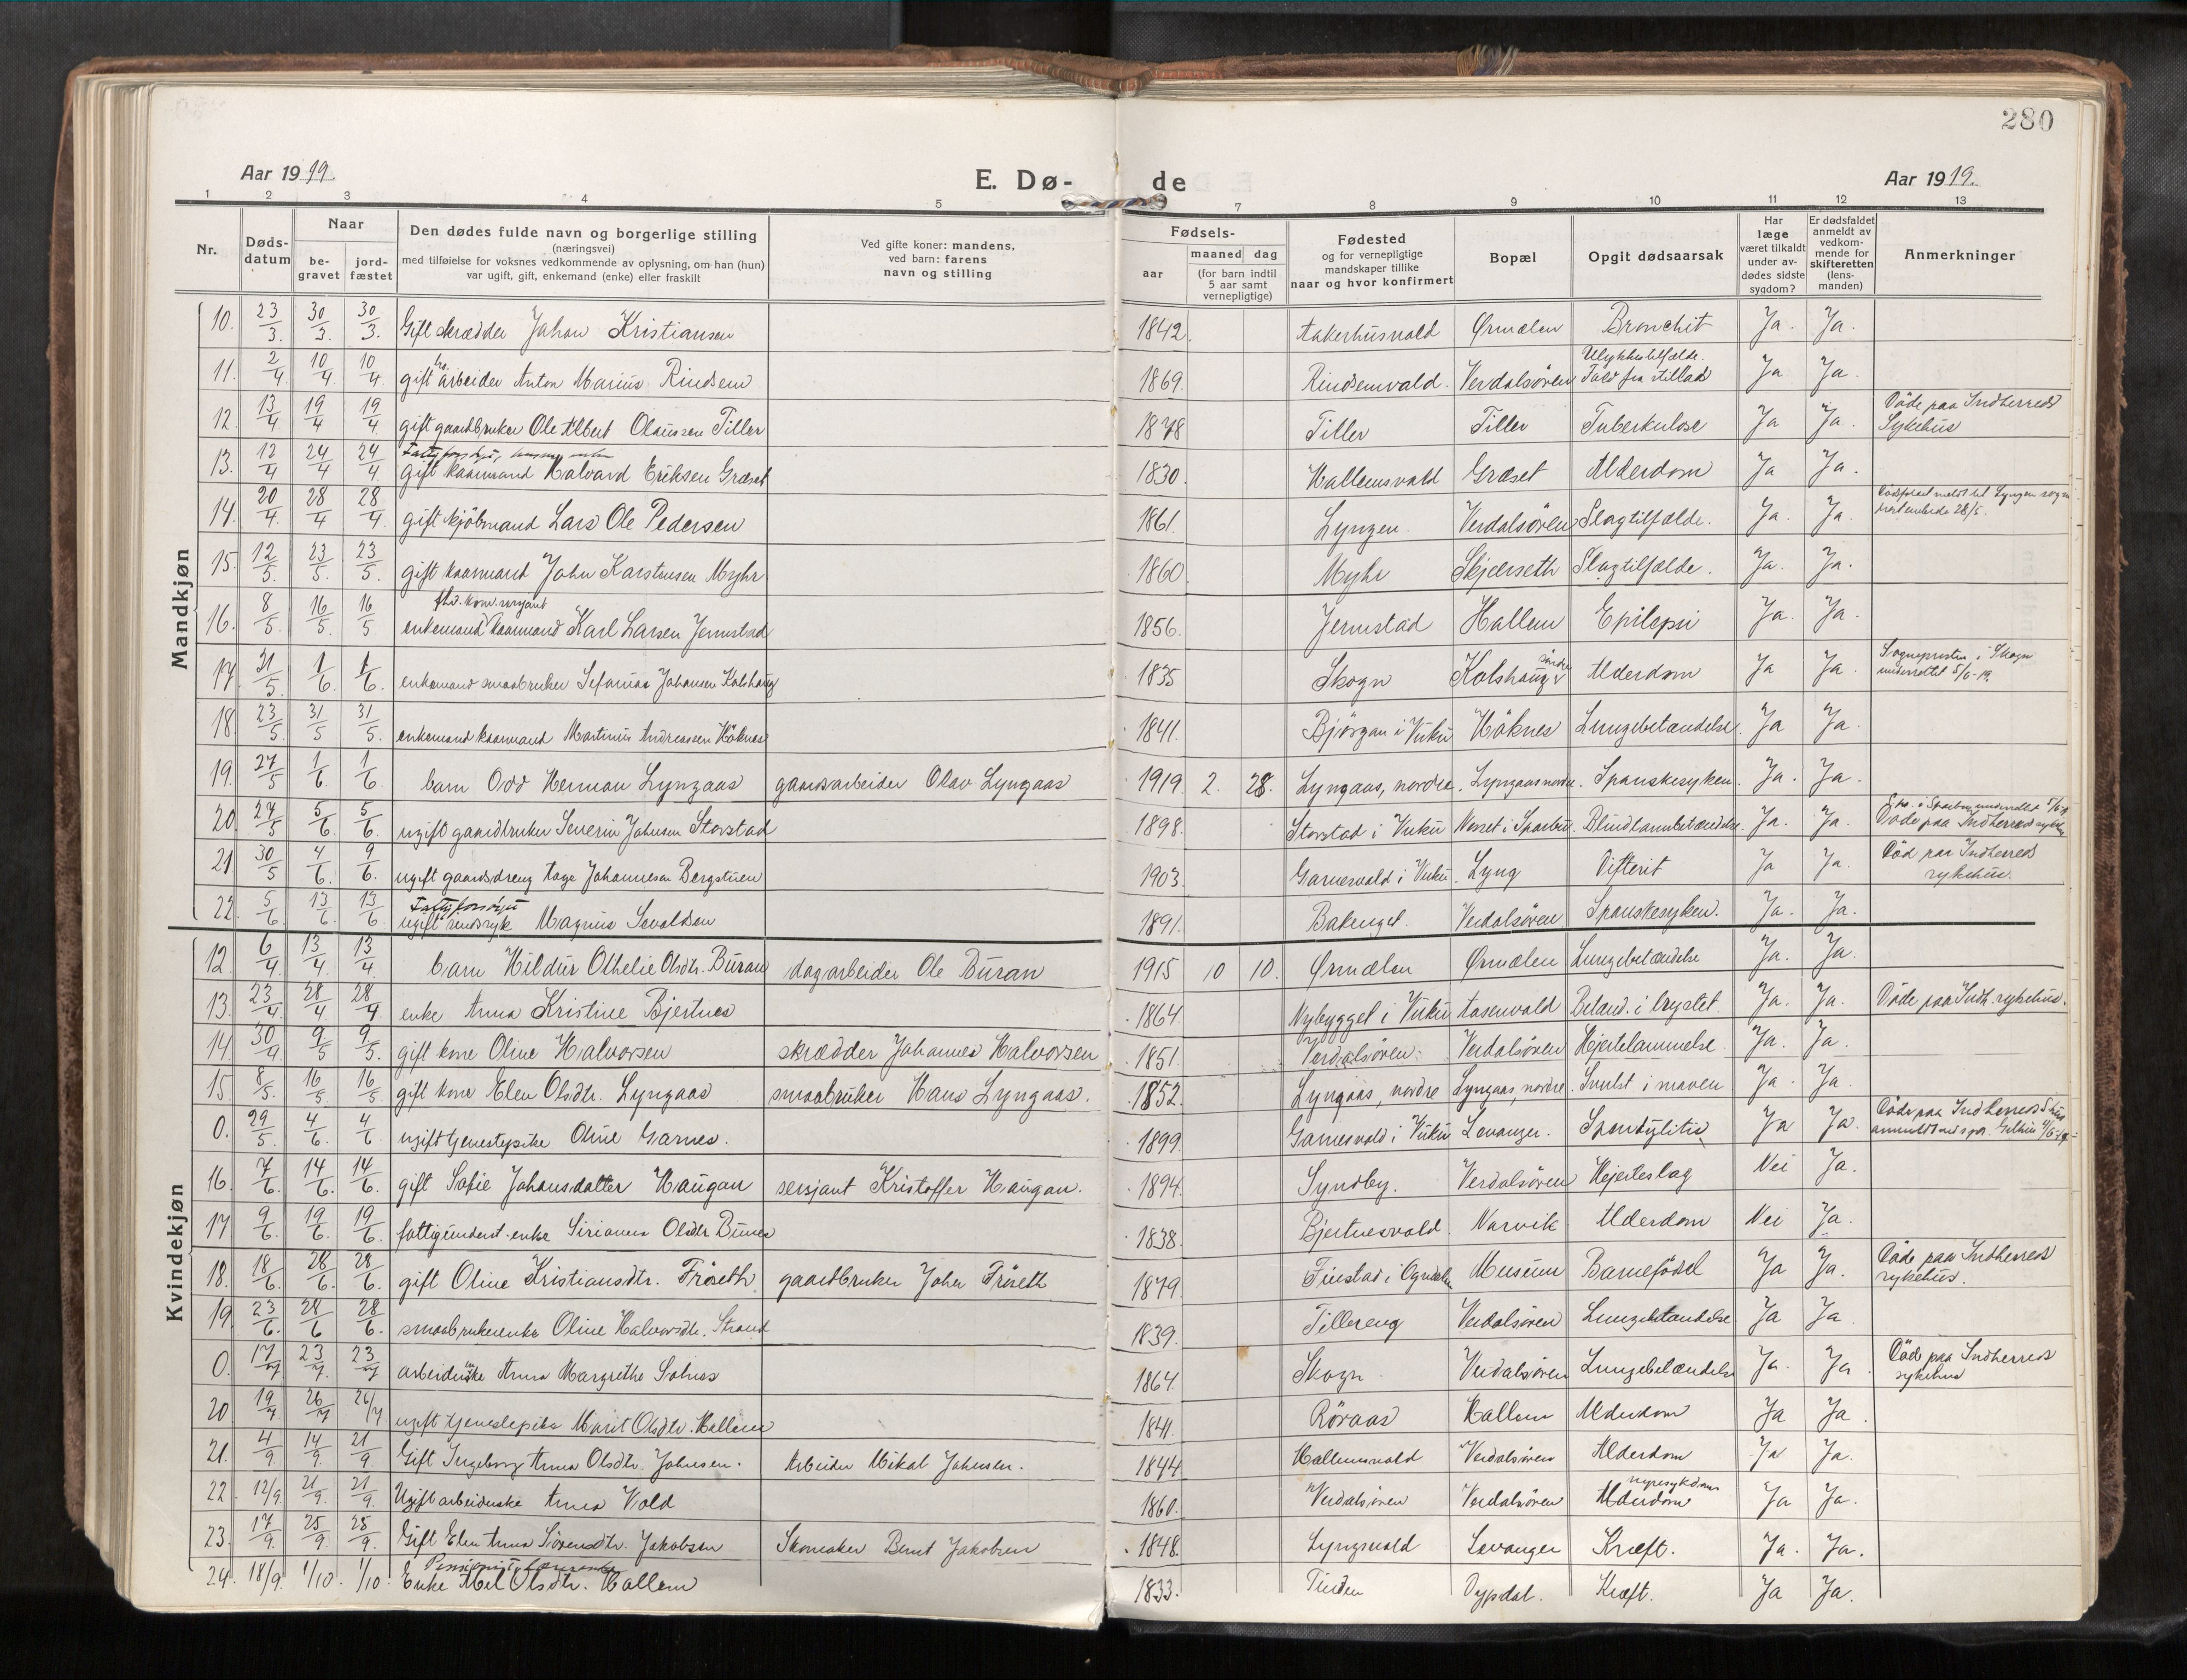 280
Aar 1919. E. Dø- de Aar 1919.
1 2 3 4 5 7 8 9 10 11 12 13
Nr. Døds-datum Naar be-gravet jord-fæstet Den dødes fulde navn og borgerlige stilling (næringsvei) med tilføielse for voksnes vedkommende av oplysning, om han (hun) var ugift, gift, enkemand (enke) eller fraskilt Ved gifte koner: mandens, ved barn: farens navn og stilling Fødsels- aar maaned dag (for barn indtil 5 aar samt vernepligtige) Fødested og for vernepligtige mandskaper tillike naar og hvor konfirmert Bopæl Opgit dødsaarsak Har læge været tilkaldt under av-dødes sidste sygdom? Er dødsfaldet anmeldt av vedkom-mende for skifteretten (lens-manden) Anmerkninger
Mandkjøn
10. 23/3. 30/3. 30/3. Gift skrædder Johan Kristiansen 1842. Aakerhusvald Ørmælen Bronchit Ja. Ja.
11. 2/4 10/4. 10/4. gift arbeider Anton Marius Rindsem 1869. Rindsemvald. Verdalsøren Ulykkestilfælde. Fald fra stillads Ja Ja.
12. 13/4 19/4 19/4 gift gaardbruker Ole Albert Olaussen Tiller 1878 Tiller Tiller Tuberkulose Ja Ja. Døde paa Indherreds Sykehus
13. 12/4 24/4 24/4 gift kaarmand Halvard Eriksen Græset 1830. Hallemsvald Græset Alderdom Ja Ja.
14. 20/4. 28/4 28/4. gift kjøbmand Lars Ole Pedersen 1861. Lyngen. Verdalsøren Slagtilfælde. Ja. Ja. Dødsfaldet meldt til Lyngen sogneprestembede 28/5.
15. 12/5. 23/5. 23/5. gift kaarmand John Karstensen Myhr 1860. Myhr Skjærseth Slagtilfælde. Ja. Ja.
16. 8/5. 16/5. 16/5. enkemand fhv. kom. sersjant kaarmand Karl Larsen Jermstad 1856. Jermstad Hallem Epilepsi Ja. Ja.
17. 31/5. 1/6. 1/6. enkemand smaabruker Sefanias Johansen Kolshaug 1835 Skogn Kolshaug søndre Alderdom Ja Ja. Sognepresten i Skogn underrettet 5/6-19.
18. 23/5. 31/5 31/5 enkemand kaarmand Martinus Andreassen Høknes 1841. Bjørgan i Vuku Høknes Lungebetændelse. Ja Ja.
19. 27/5 1/6. 1/6 barn Odd Herman Lyngaas gaardsarbeider Olav Lyngaas 1919 2. 28. Lyngaas, nordre. Lyngaas nordre. Spanskesyken. Ja. Ja.
20 27/5 5/6. 5/6. ugift gaardbruker Severin Johnsen Storstad 1898. Storstad i Vuku Vorset i Sparbu. Blindtarmbetændelse. Ja. Ja. Døde paa Indherreds sykehus
21 30/5 4/6. 9/6. ugift gaardsdreng Aage Johannesen Bergstuen 1903. Garnesvald i Vuku. Lyng Difterit Ja Ja. Død paa Indherreds sykehus.
22. 5/6. 13/6 13/6 Fattigforsørget ugift sindssyk Magnus Sevaldsen 1891. Bakenget. Verdalsøren Spanskesyken. Ja. Ja.
Kvindekjøn
12. 6/4 13/4 13/4 barn Hildur Othelie Olsdtr. Buran dagarbeider Ole Buran 1915 10 10. Ørmælen Ørmælen Lungebetændelse Ja. Ja.
13. 23/4. 28/4 28/4 enke Anna Kristine Bjertnes 1864. Nybygget i Vuku Aasenvald Betænd. i brystet. Ja. Ja. Døde paa Indh. sykehus.
14. 30/4 9/5 9/5. gift kone Oline Halvorsen skrædder Johannes Halvorsen 1851. Verdalsøren. Verdalsøren Hjertelammelse Ja. Ja.
15. 8/5. 16/5 16/5. gift kone Elen Olsdtr. Lyngaas smaabruker Hans Lyngaas. 1852. Lyngaas, nordre Lyngaas, nordre. Svulst i maven Ja. Ja.
0. 29/5 4/6. 4/6 ugift tjenestepike Oline Garnes. 1899. Garnesvald i Vuku Levanger. Spondylitis Ja Ja. Døde paa Indherreds S.hus
16. 7/6. 14/6. 14/6. gift Sofie Johansdatter Haugan sersjant Kristoffer Haugan. 1894. Syndby. Verdalsøren Hjerteslag Nei Ja.
17 9/6. 19/6 19/6. fattigunderst. enke Sirianna Olsdtr. Bunes 1838. Bjertnesvald. Marvik Alderdom Nei Ja.
18. 18/6. 28/6 28/6. gift Oline Kristiansdtr. Frøseth gaardbruker John Frøseth 1879. Finstad i Ogndalen Musum Barnefødsel Ja Ja. Døde paa Indherreds sykehus.
19. 23/6. 28/6 28/6. smaabrukerenke Oline Halvorsdtr. Strand 1839. Tillereng Verdalsøren Lungebetændelse Ja Ja.
0. 17/7 23/7. 23/7 arbeiderske Anna Margrethe Solnes 1864. Skogn Verdalsøren Lungebetændelse Ja. Ja. Døde paa Indherreds sykehus
20 19/7 26/7 26/7 ugift tjenestepike Marit Olsdtr. Hallem 1841. Røraas Hallem Alderdom Ja Ja.
21. 4/9. 14/9. 21/9. Gift Ingeborg Anna Olsdtr. Johnsen. Arbeider Mikal Johnsen. 1844 Hallemsvald Verdalsøren Alderdom Ja Ja.
22. 12/9. 21/9. 21/9. Ugift arbeiderske Anna Vold 1860. Verdalsøren Verdalsøren Alderdom Nyresykdom Ja Ja.
23. 17/9. 25/9. 25/9. Gift Elen Anna Sørensdtr. Jakobsen Skomaker Bernt Jakobsen 1848. Lyngsvald Levanger Kræft. Ja. Ja.
24. 18/9. 1/10. 1/10. Enke Mel Olsdtr. Hallem 1833. Tinden Dypdal. Kræft. Ja Ja.